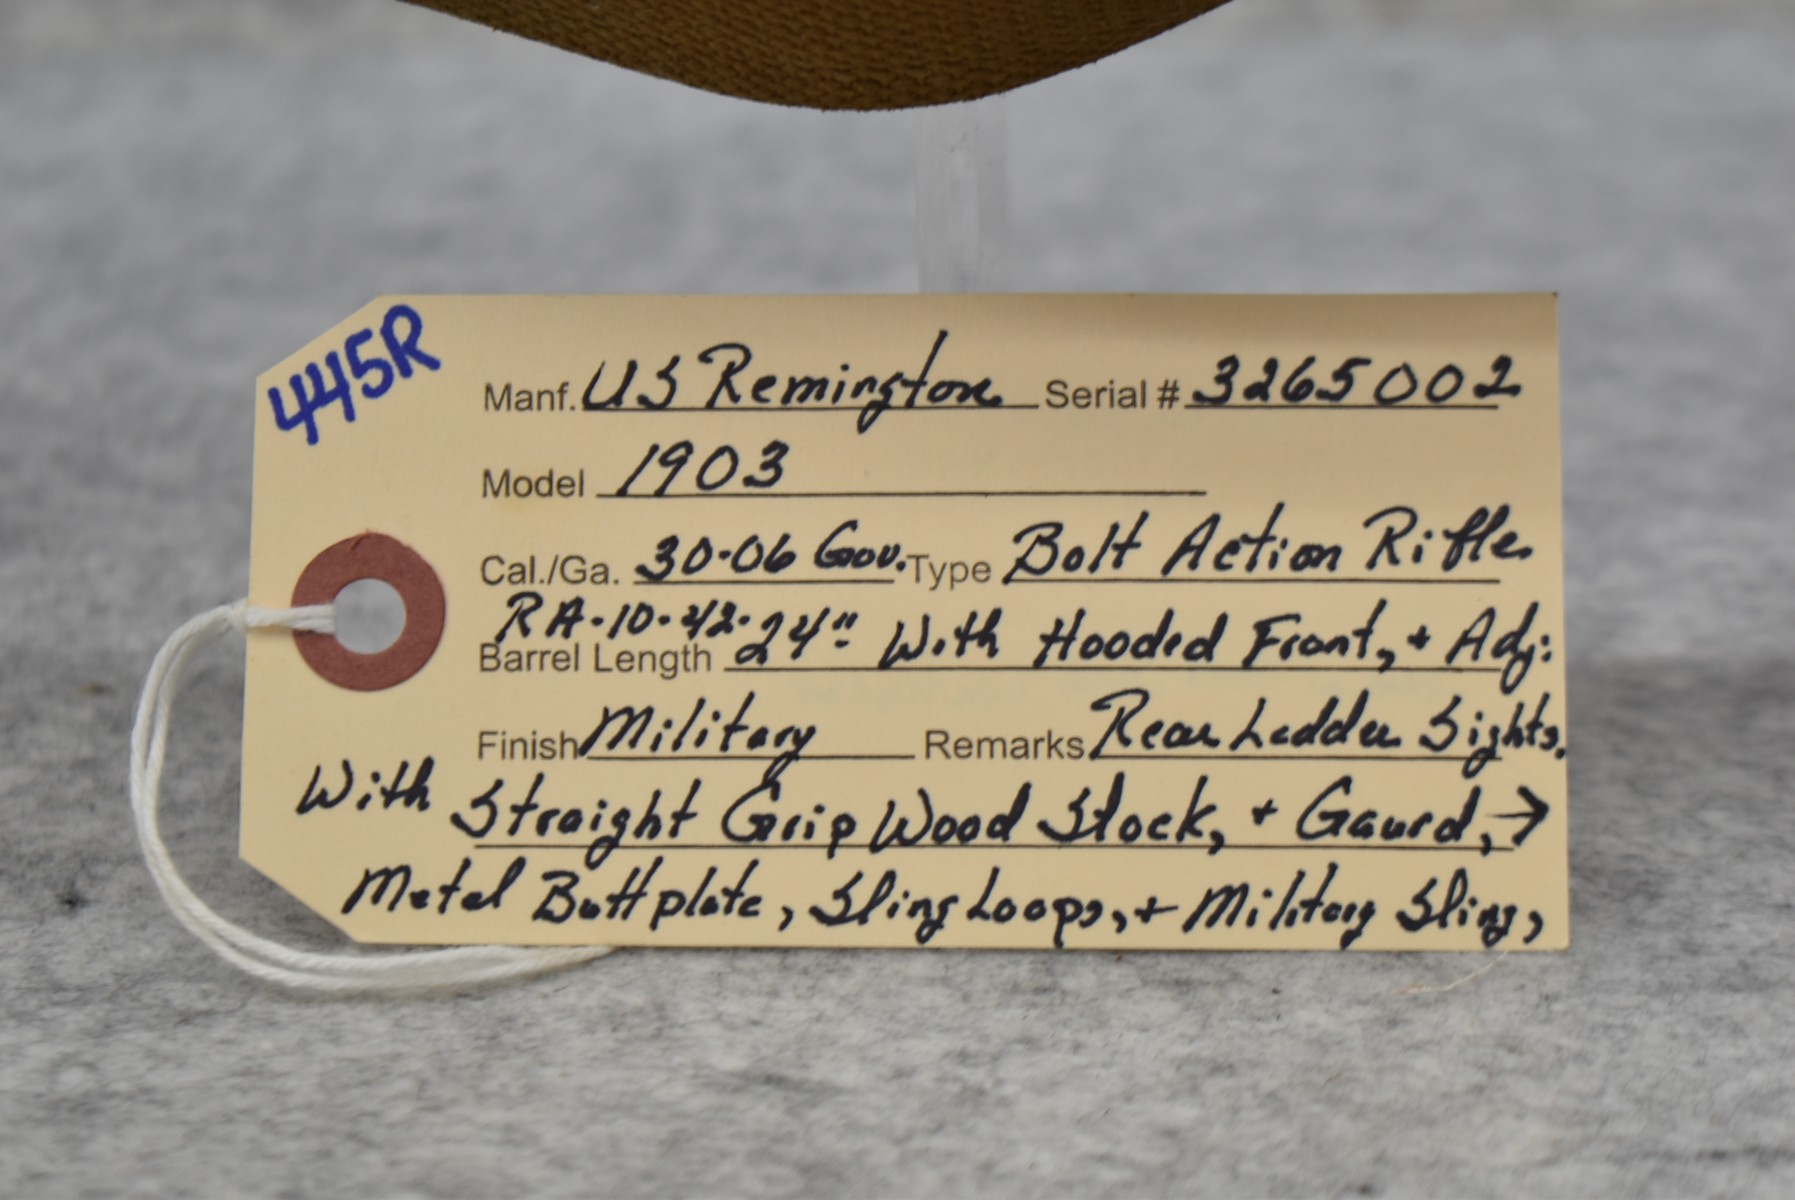 445R
Manf. US Remington. Serial # 3265002
Model 1903
Cal./Ga. 30-06 Gov. Type Bolt Action Rifle.
RA-10-42-
Barrel Length 24" With Hooded Front, + Adj:
Finish Military Remarks Rear Ladder Sights.
With Straight Grip Wood Stock, + Gaurd, →
Metal Buttplate, Sling Loops, + Military Sling,